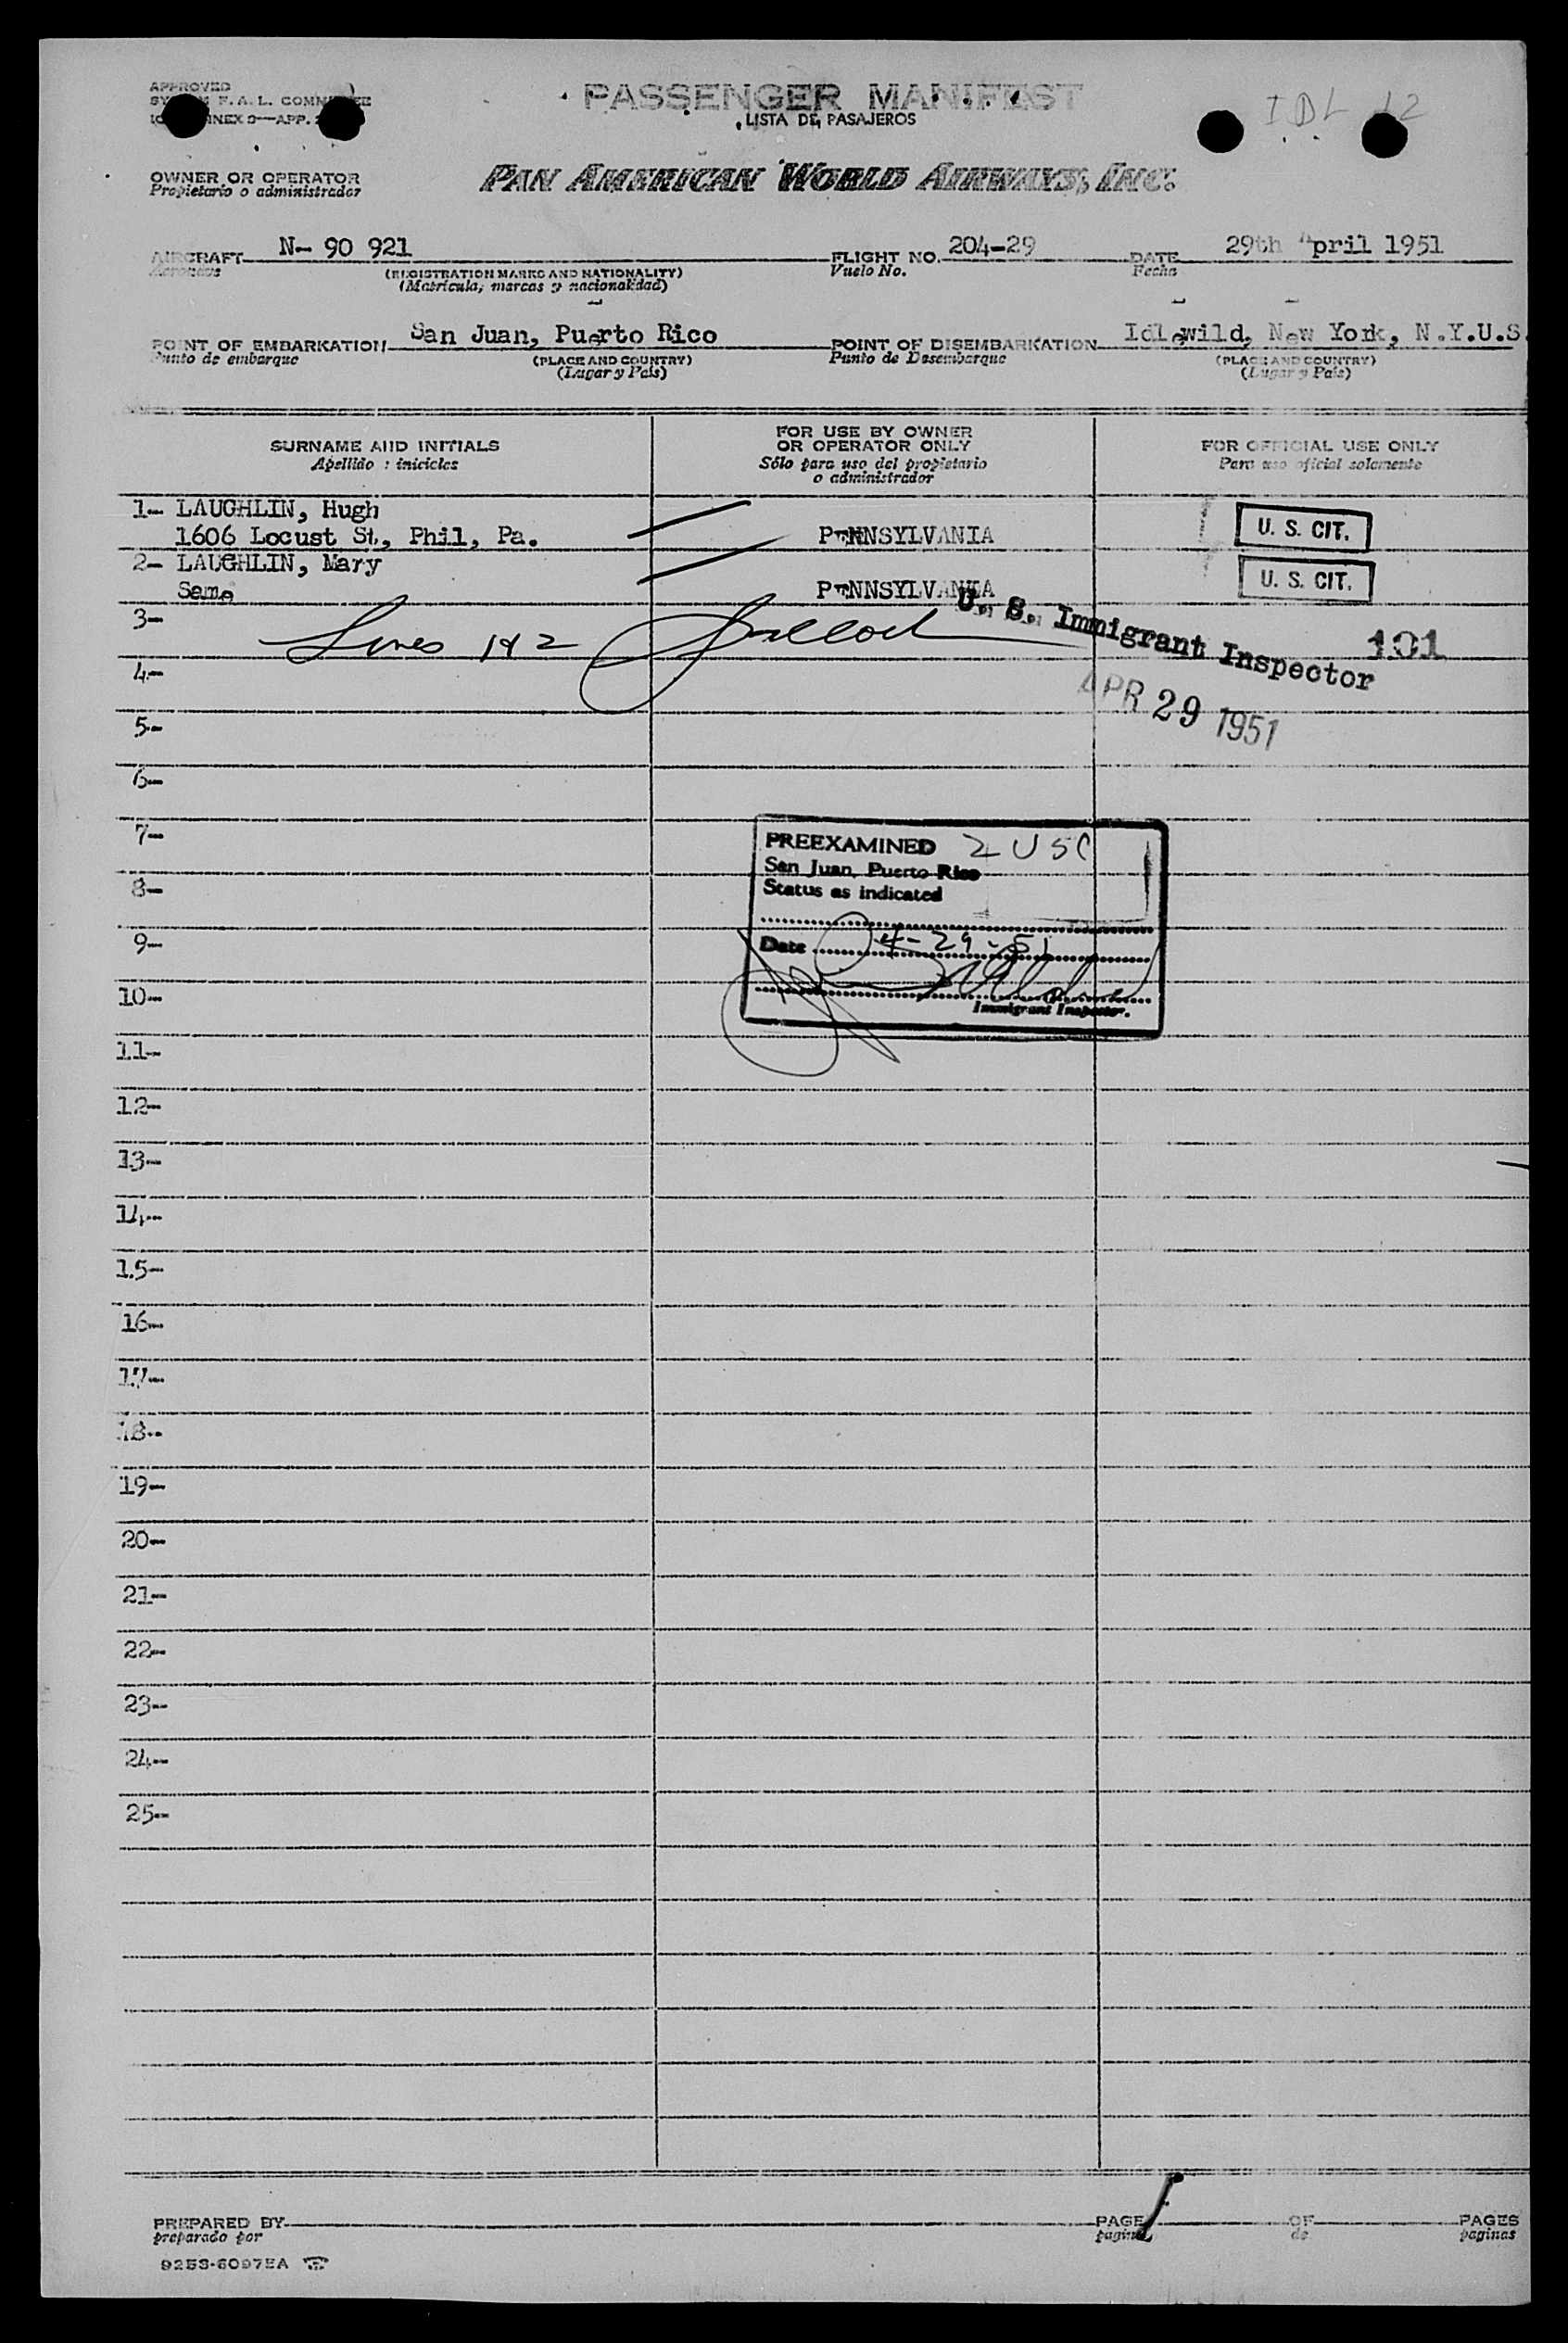 APPROVED
F. A. L. COMMITTEE
ANNEX 9—APP.
PASSENGER MANIFEST
LISTA DE PASAJEROS
IDL 12
OWNER OR OPERATOR
Propietario o administrador
PAN AMERICAN WORLD AIRWAYS, INC.
AIRCRAFT N- 90 921 FLIGHT NO. 204-29 DATE 29th April 1951
Aeronave (REGISTRATION MARKS AND NATIONALITY) Vuelo No. Fecha
(Matrícula, marcas y nacionalidad)
POINT OF EMBARKATION San Juan, Puerto Rico POINT OF DISEMBARKATION Idlewild, New York, N.Y.U.S.
Punto de embarque (PLACE AND COUNTRY) Punto de Desembarque (PLACE AND COUNTRY)
(Lugar y País) (Lugar y País)
SURNAME AND INITIALS FOR USE BY OWNER OR OPERATOR ONLY FOR OFFICIAL USE ONLY
Apellido : iniciales Sólo para uso del propietario o administrador Para uso oficial solamente
1- LAUGHLIN, Hugh
1606 Locust St., Phil, Pa. PENNSYLVANIA U. S. CIT.
2- LAUGHLIN, Mary
Same PENNSYLVANIA U. S. CIT.
3- Lines 1 & 2 U. S. Immigrant Inspector 101
4-
APR 29 1951
5-
6-
7-
PREEXAMINED 2 USC
San Juan, Puerto Rico
8-
Status as indicated
9-
Date 4-29-51
10-
Immigrant Inspector.
11-
12-
13-
14-
15-
16-
17-
18-
19-
20-
21-
22-
23-
24-
25-
PREPARED BY PAGE 1 OF PAGES
preparado por pagina de paginas
9253-6097EA